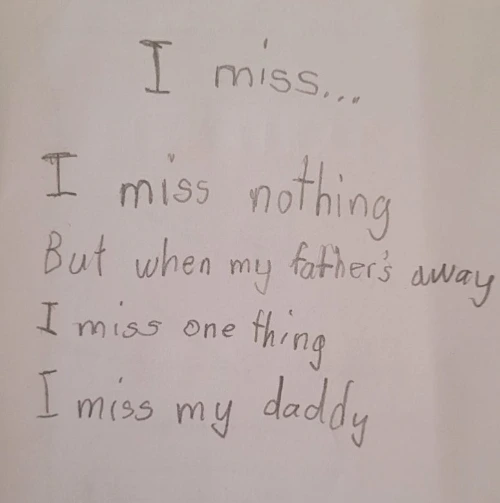 I miss...
I miss nothing
But when my father's away
I miss one thing
I miss my daddy